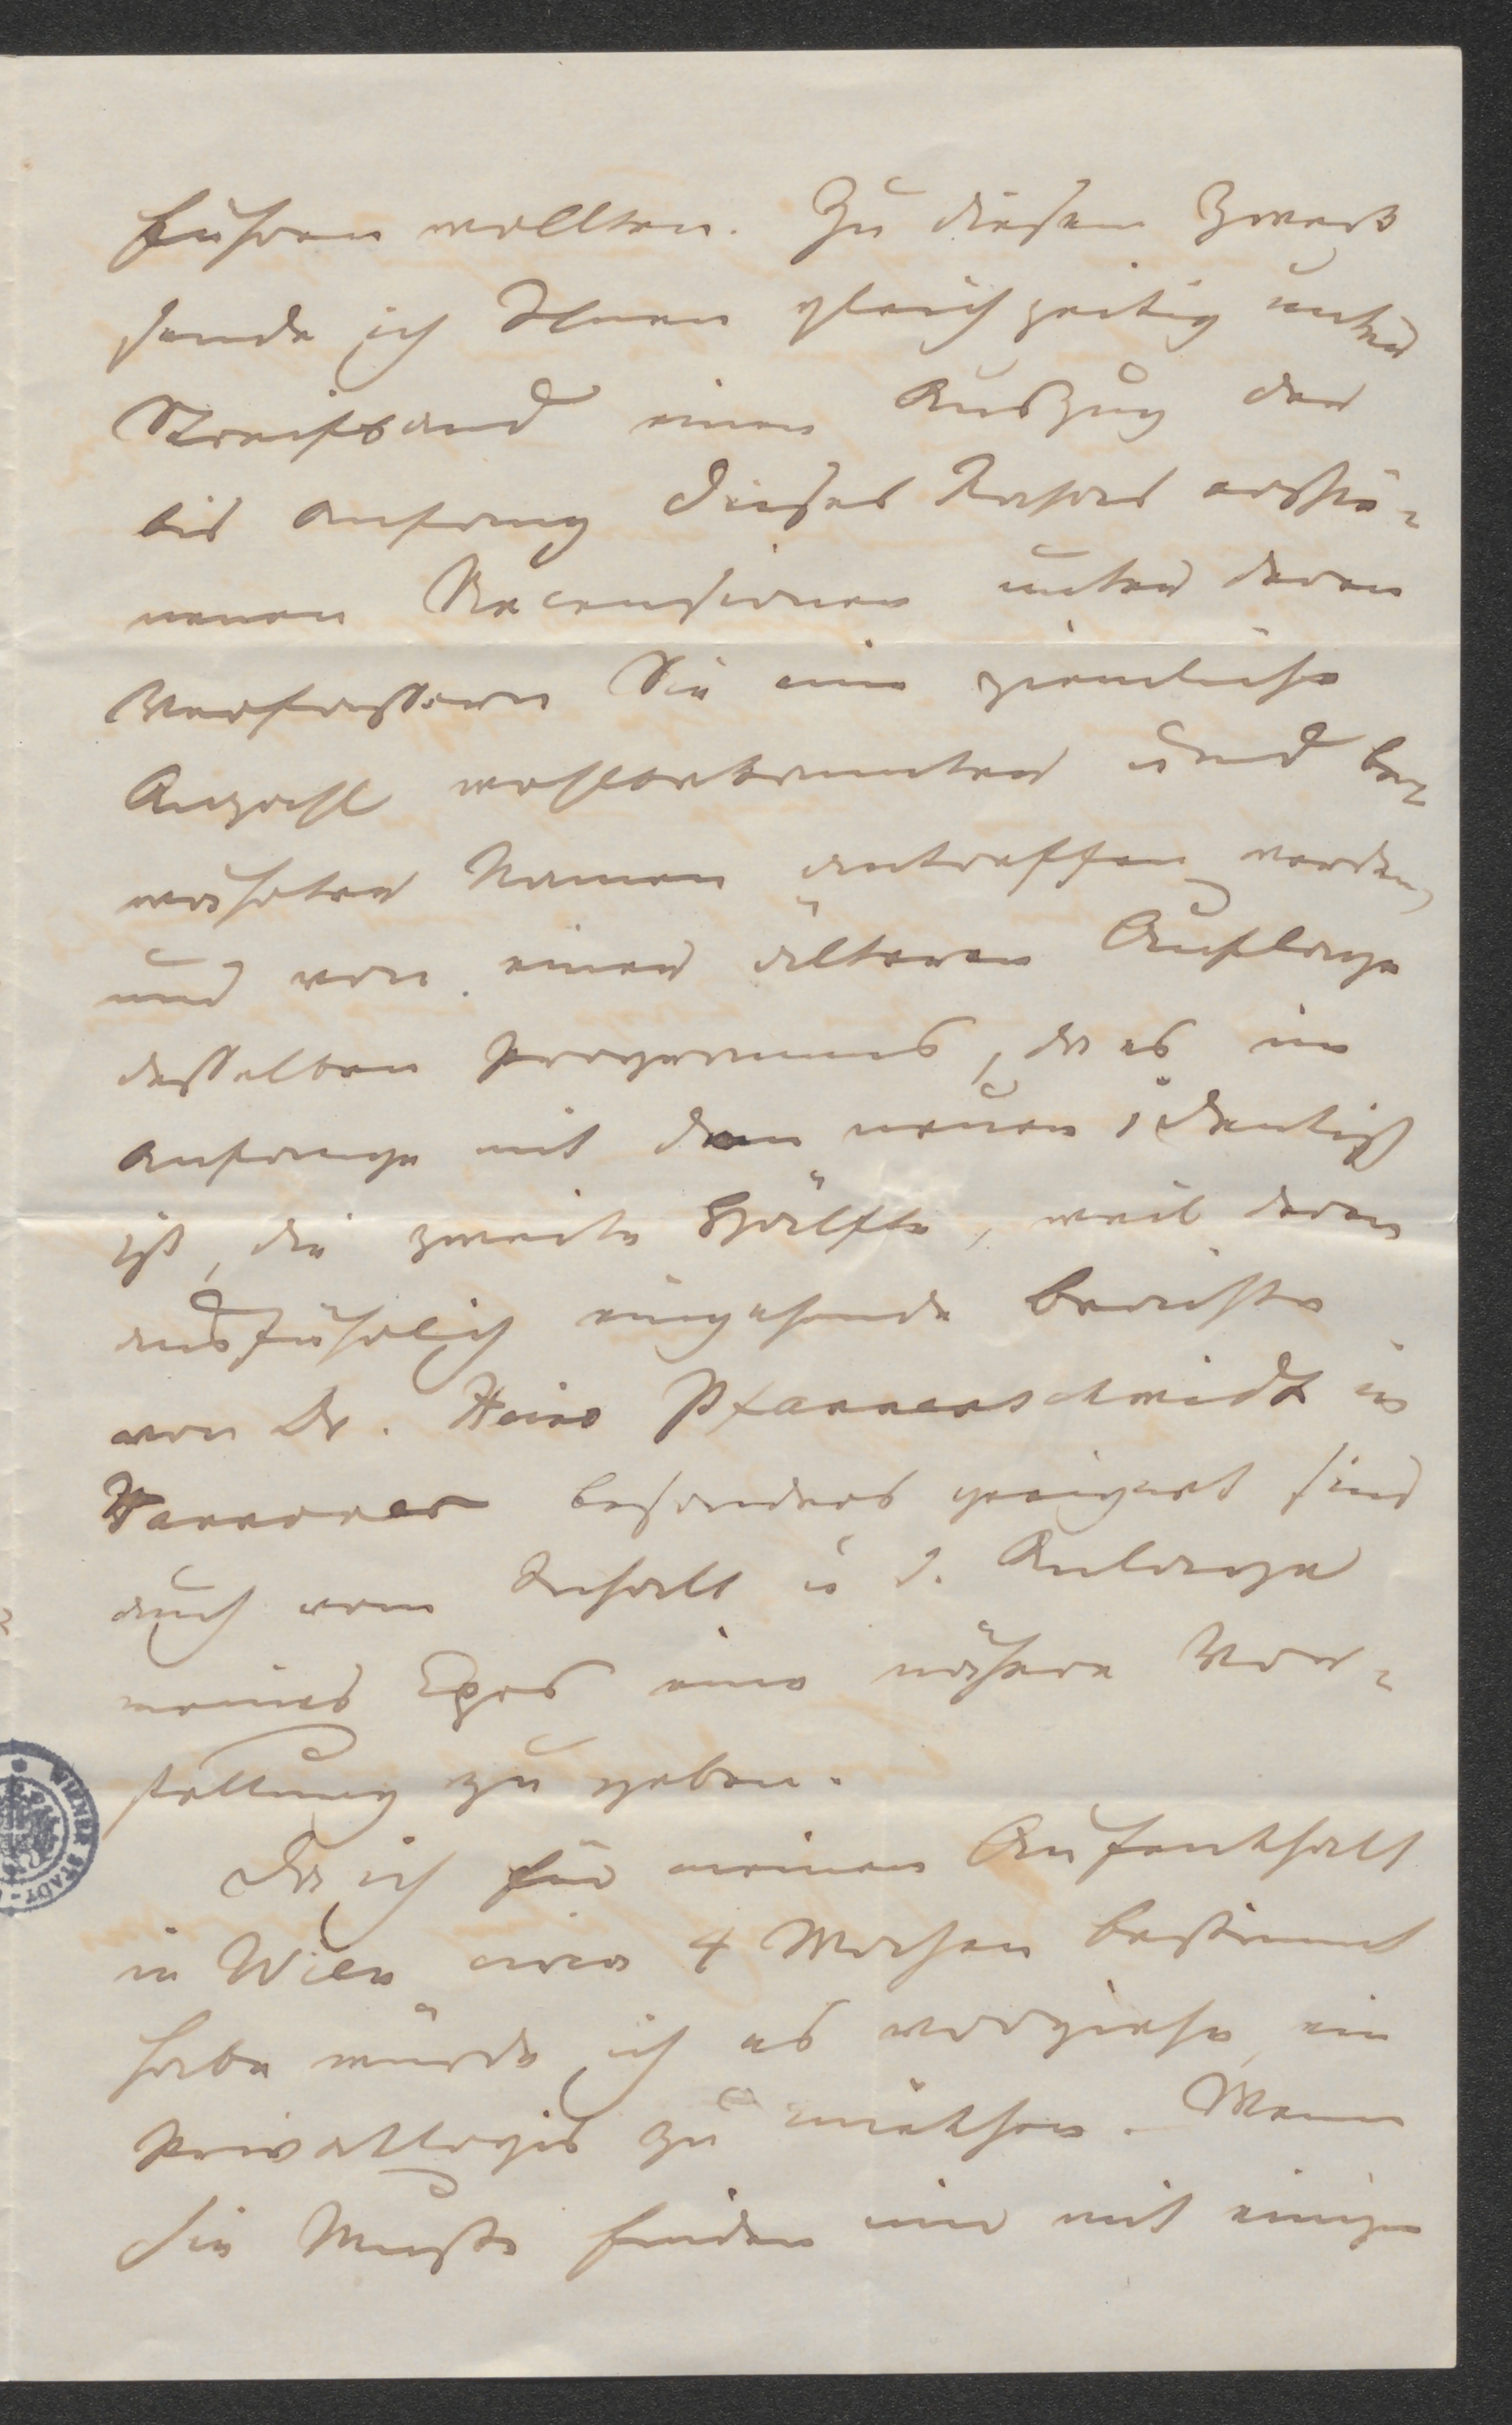 führen wollten. Zu diesem Zweck
sende ich Ihnen gleichzeitig unter
Streifband einen Auszug der
bis Anfang dieses Jahres erschie-
nenen Recensionen unter deren
Verfassern Sie eine ziemliche
Anzahl wohlbekannter und be-
währter Namen antreffen werden,
und von einer älteren Auflage
desselben Programms, da es im
Anfange mit dem neuen identisch
ist, die zweite Hälfte, weil deren
ausführlich eingehende Berichte
von Dr. Heino Pfannenschmidt in
Hannover besonders geeignet sind
auch vom Inhalt u d. Anlage
meines Epos eine nähere Vor-
stellung zu geben.
Da ich für meinen Aufenthalt
in Wien circa 4 Wochen bestimmt
habe würde ich es vorziehen ein
Privatlogis zu miethen. Wenn
Sie Muße finden mir mit einigen
WIENER STADT-